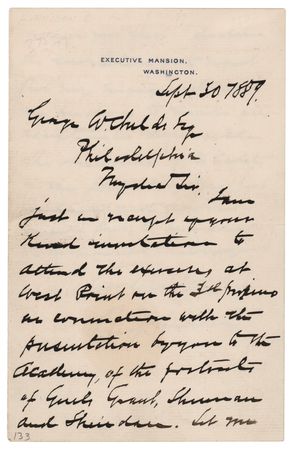 EXECUTIVE MANSION,
WASHINGTON.
Sept 30, 1889.
George W Childs Esq
Philadelphia
My dear Sir, I am
just in receipt of your
kind invitation to
attend the exercises at
West Point on the 3rd proximo
in connection with the
presentation by you to the
Academy, of the portraits
of Genls Grant, Sherman
and Sheridan. Let me
133